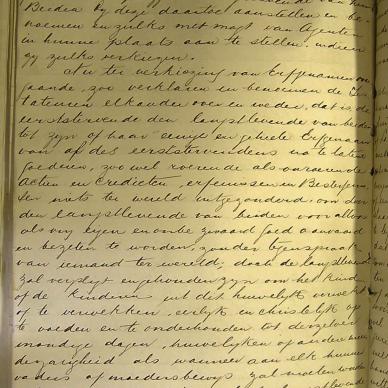 Beiden by deze daartoe aanstellen en be-
noemen en zulks met magt van Agenten
in hunne plaats aan te stellen, indien
zy zulks verkiezen.
Nu ter verkiezing van Erfgenamen over-
gaande, zoo verklaren en benoemen de Tes-
tateuren elkander over en weder, dat is de
eerststervende den langstlevende van beiden
tot zyn of haar eenige en geheele Erfgenaam
van op des eerststervendens na te laten
goederen, zoo wel roerende als onroerende
Actien en Credieten, erfenissen en Besterfenis-
sen niets ter wereld uitgezonderd, om door
den langstlevende van beiden voor altoos
als vry eigen en onbezwaard goed aanvaard
en bezeten te worden, zonder tegenspraak
van iemand ter wereld, doch de langstlevende
zal verpligt en gehouden zyn om het kind
of de kinderen uit dit huwelyk verwekt
of te verwekken, eerlyk en christelyk op
te voeden en te onderhouden tot derzelver
mondige dagen, huwelyken of andere
als wanneer aan elk hunner
vaders of moedersbewys zal moeten worden